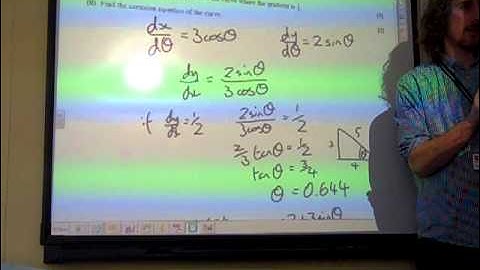 (ii) Find the cartesian equation of the curve.
dx/dθ = 3cosθ    dy/dθ = 2sinθ
dy/dx = 2sinθ/3cosθ
if dy/dx = 1/2    2sinθ/3cosθ = 1/2
2/3 tanθ = 1/2
tanθ = 3/4
θ = 0.644
3 5 4 θ